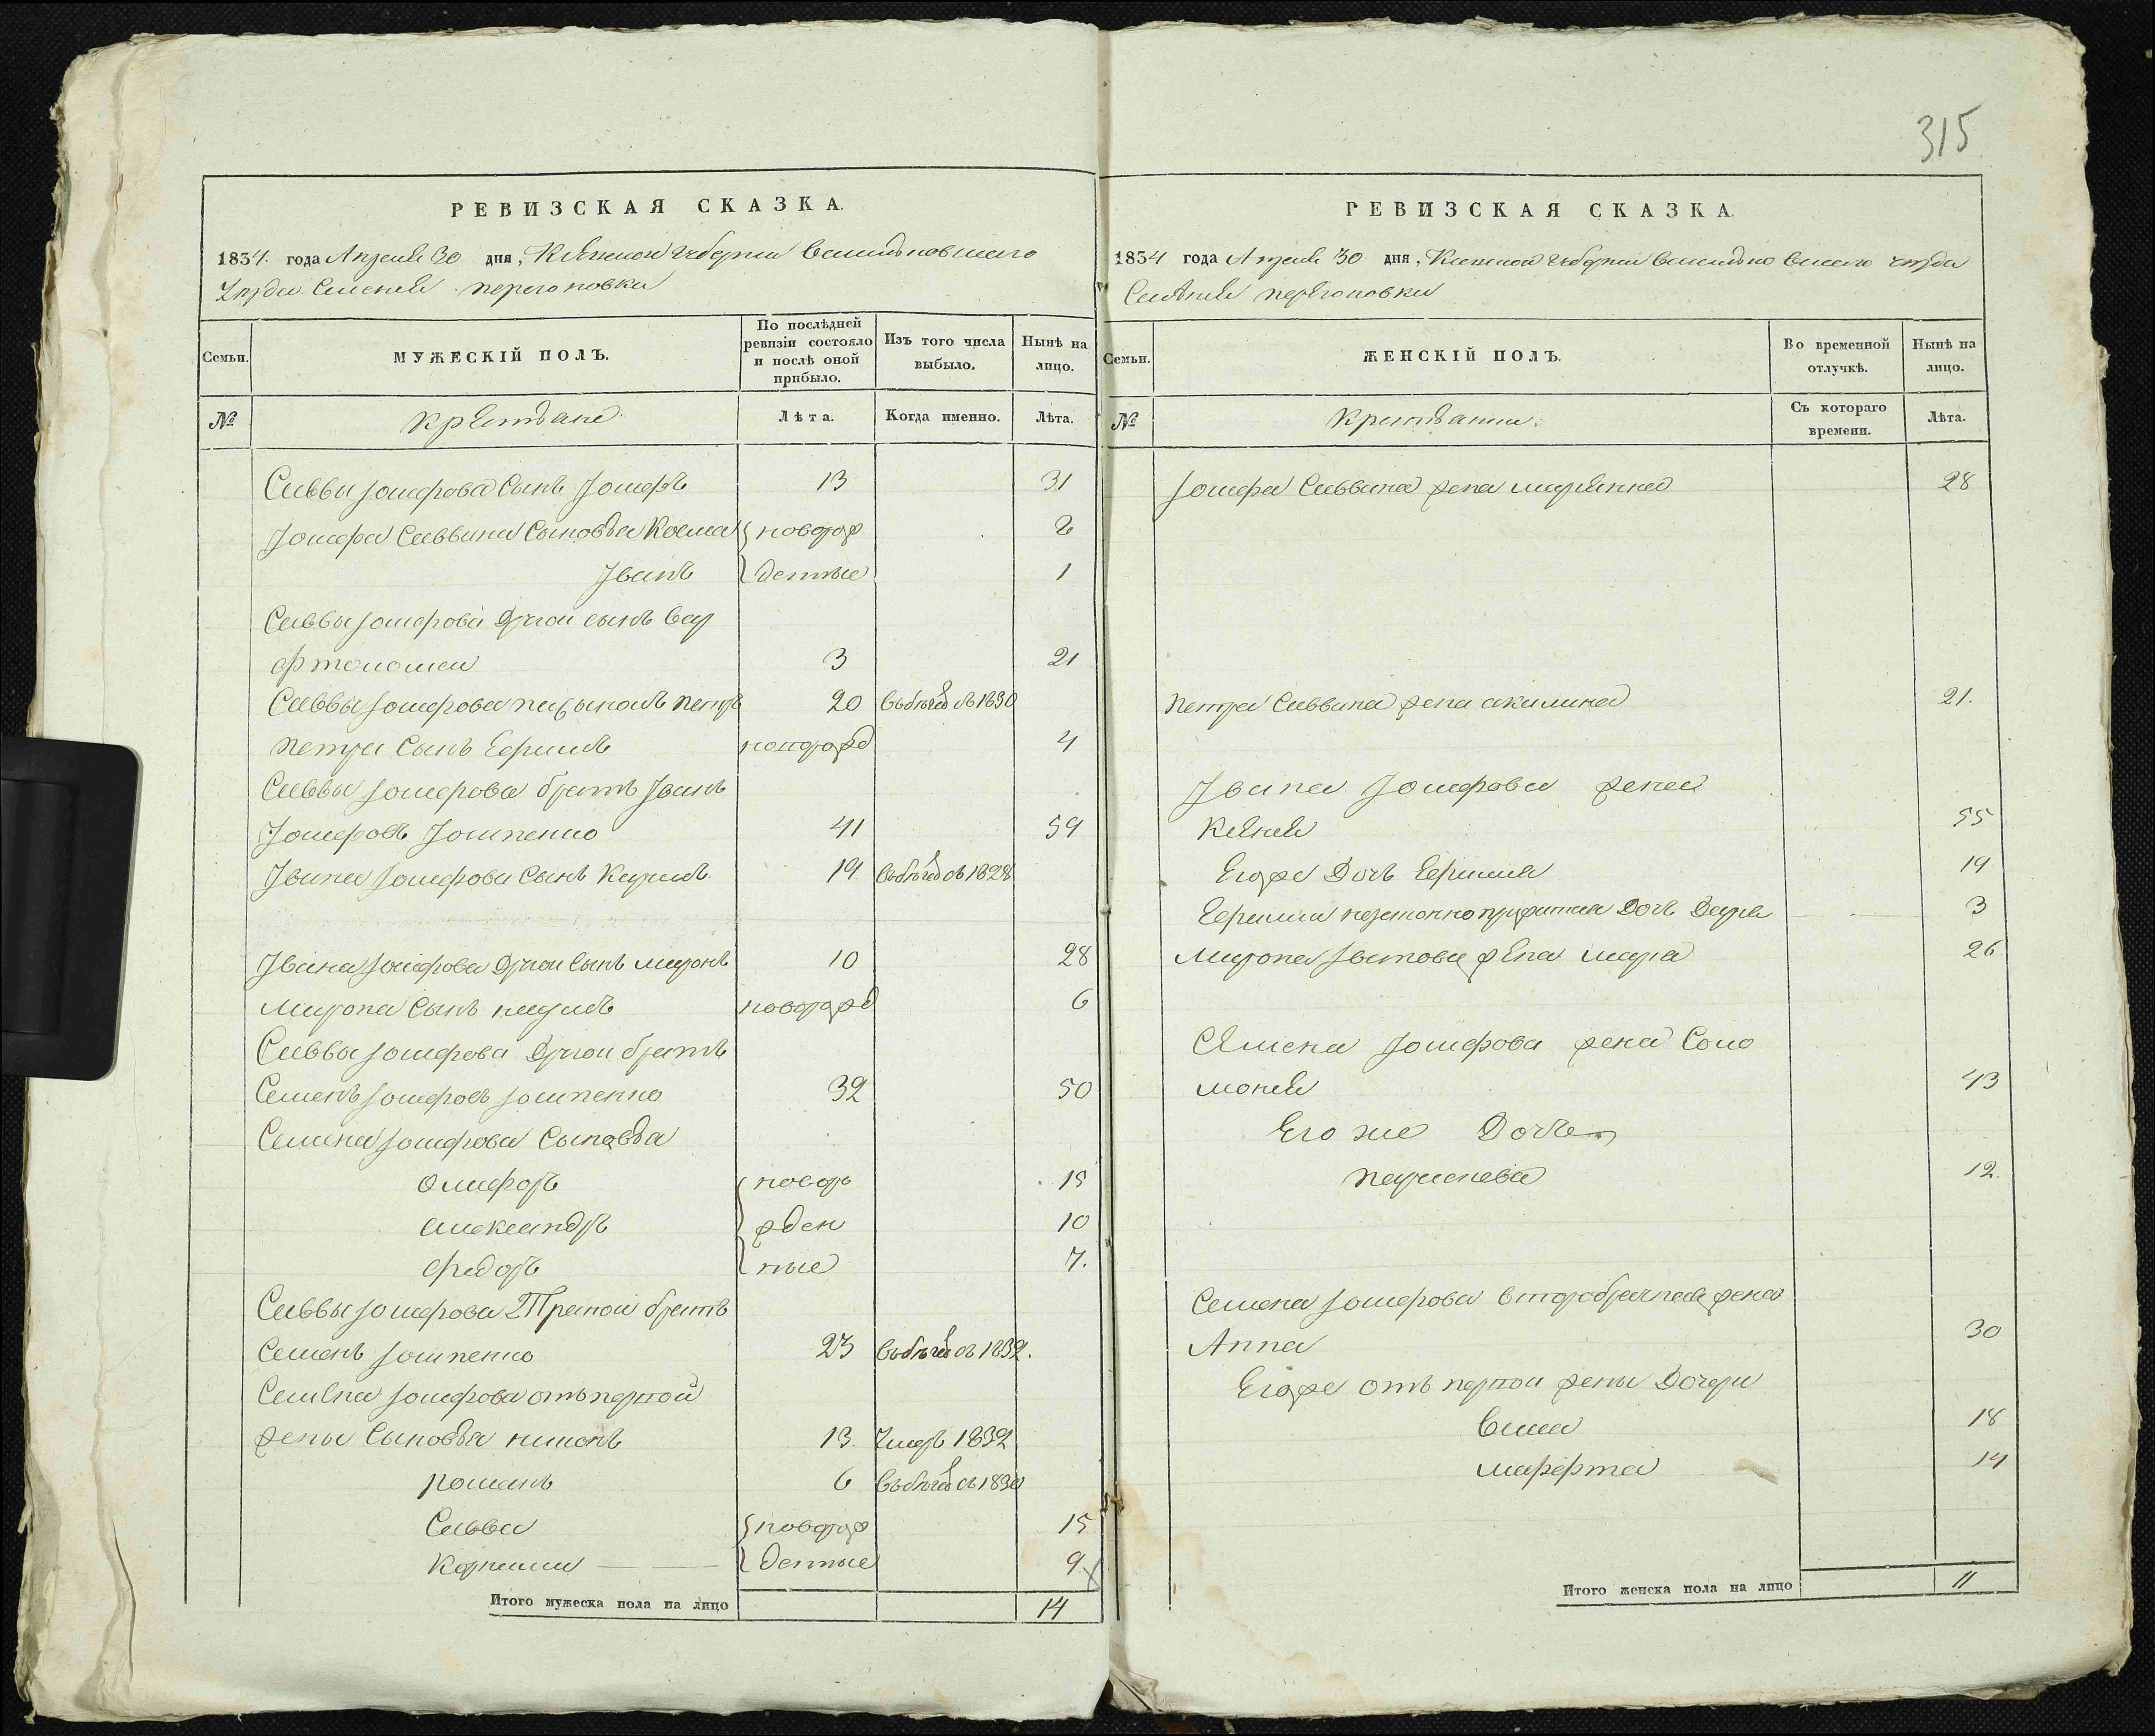 315
РЕВИЗСКАЯ СКАЗКА.
1834. года Апреля 30 дня, Киевской губерніи Васильковскаго
Уезда Селенія перегоновки
Семьи.
МУЖЕСКІЙ ПОЛЪ.
По послѣдней ревизіи состояло и послѣ оной прибыло.
Изъ того числа выбыло.
Нынѣ на лицо.
№
крестьяне
Лѣта.
Когда именно.
Лѣта.
Саввы Іосифова Сынъ Іосифъ 13 31
Іосифа Саввина Сыновья Косма новорож 2
Іванъ денные 1
Саввы Іосифова Другой сынъ Вар
фтоломей 3 21
Саввы Іосифова пасынокъ петръ 20 въ бегах съ 1830
петра Сынъ Ефримъ новорожд 4
Саввы Іосифова братъ Іванъ
Іосифовъ 41 59
Івана Іосифова Сынъ Кирилъ 19 въ бегах съ 1828
Івана Іосифова Другой Сынъ миронъ 10 28
мирона Сынъ новорожд 6
Саввы Іосифова Другой братъ
Семенъ Іосифовъ 32 50
Семена Іосифова Сыновья
Олифоръ новоро 15
александръ жден 10
федоръ ные 7.
Саввы Іосифова Третой братъ
Семенъ 23 въ бегах съ 1832.
Семена Іосифова отъ первой
жены Сыновья никонъ 13. Умеръ 1832
романъ 6 въ бегах съ 1830
Савва новорож 15
Корнилий денные 9
Итого мужеска пола на лицо 14
РЕВИЗСКАЯ СКАЗКА.
1834 года Апреля 30 дня, Киевской губерніи Васильковскаго уезда
Селенія перегоновки
Семьи.
ЖЕНСКІЙ ПОЛЪ.
Во временной отлучкѣ.
Нынѣ на лицо.
№
крестьянки.
Съ котораго времени.
Лѣта.
Іосифа Саввина жена марианна 28
петра Саввина жена акилина 21.
Івана Іосифова жена
Ксенія 55
Егоже Дочь Ефимия 19
Ефимии незаконно прижитая Дочь Дарья 3
Мирона Іванова жена мария 26
Семена Іосифова жена Соло
мония 43
Его же Дочь
параскева 12.
Семена Іосифова второбрачная жена
Анна 30
Егоже отъ первой жены Дочери
18
марфта 14
Итого женска пола на лицо 11